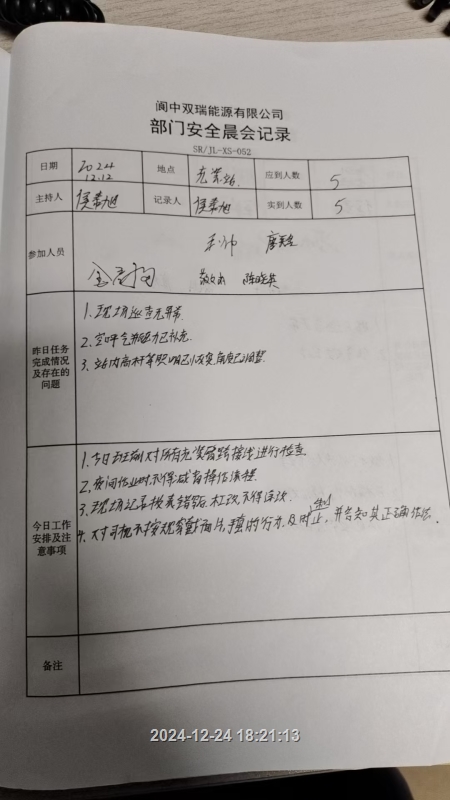 阆中双瑞能源有限公司
部门安全晨会记录
SR/JL-XS-052
日期 2024 12.12 地点 充装站 应到人数 5
主持人 侯春旭 记录人 侯春旭 实到人数 5
参加人员
昨日任务完成情况及存在的问题
1.现场巡查无异常.
2.空呼气瓶压力已补充.
3.站内高杆等照明已改变角度已调整.
今日工作安排及注意事项
1.今日班前对所有充装鹤跨接线进行检查.
2.夜间作业时不得减省操作流程.
3.现场记录按真错写后杠改不得涂改.
4.对司机不按规穿戴的行为,及时制止,并告知其正确做法.
备注
2024-12-24 18:21:13